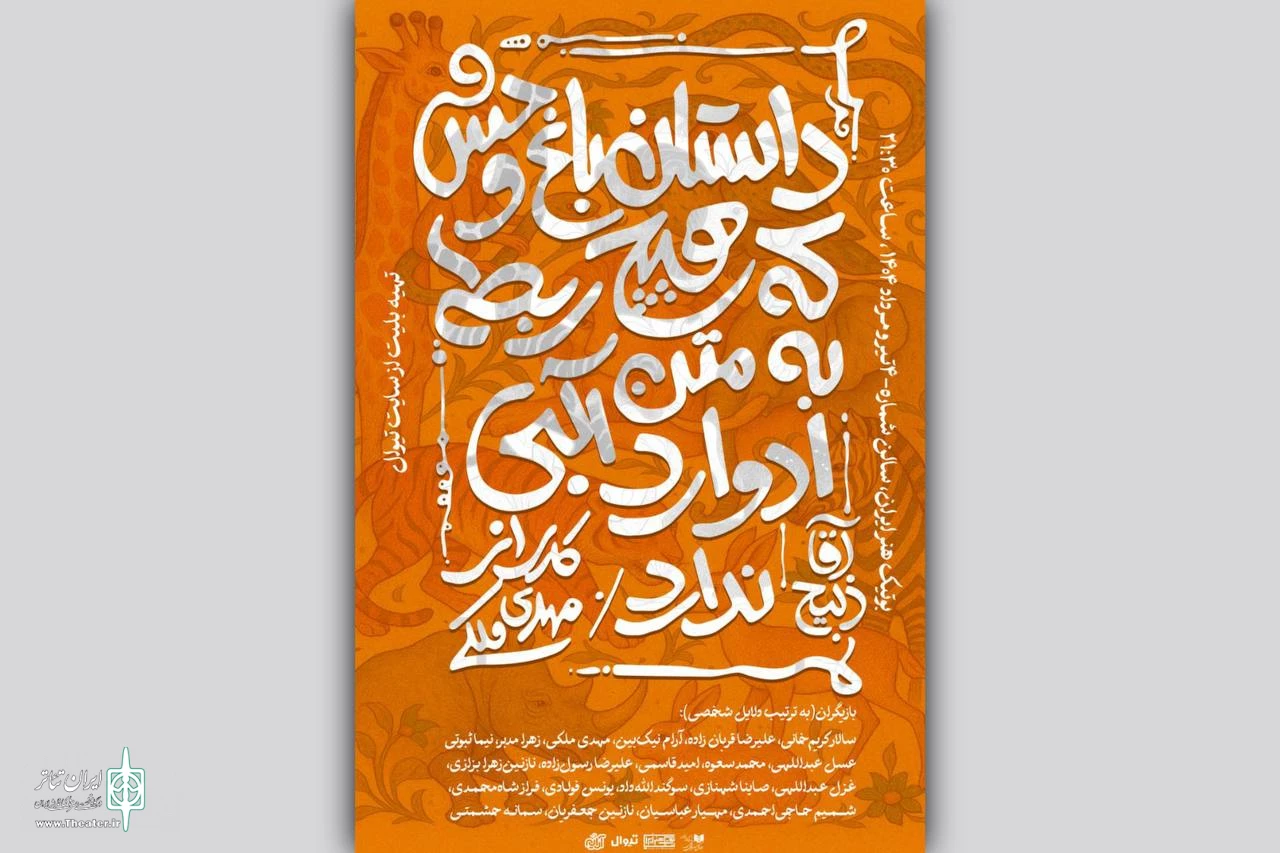 داستان باغ وحش و
که هیچ ربطی
به متن
ادوارد آلبی
ندارد
کاری از
مهدی ملکی
آقا
ذبیح
بوتیک هنر ایران، سالن شماره ۴- تیر و مرداد ۱۴۰۴، ساعت ۲۱:۳۰
تهیه بلیت از سایت تیوال
بازیگران (به ترتیب دلایل شخصی):
سالار کریم‌خانی، علیرضا قربان زاده، آرام نیک‌بین، مهدی ملکی، زهرا مدبر، نیما ثبوتی
عسل عبداللهی، محمد سعوه، امید قاسمی، علیرضا رسول‌زاده، نازنین‌زهرا بزازی،
غزل عبداللهی، صاینا شهنازی، سوگند الله داد، یونس فولادی، فراز شاه‌محمدی،
شمیم حاجی‌احمدی، مهیار عباسیان، نازنین جعفریان، سمانه حشمتی
تیوال
ایران تئاتر
www.Theater.ir